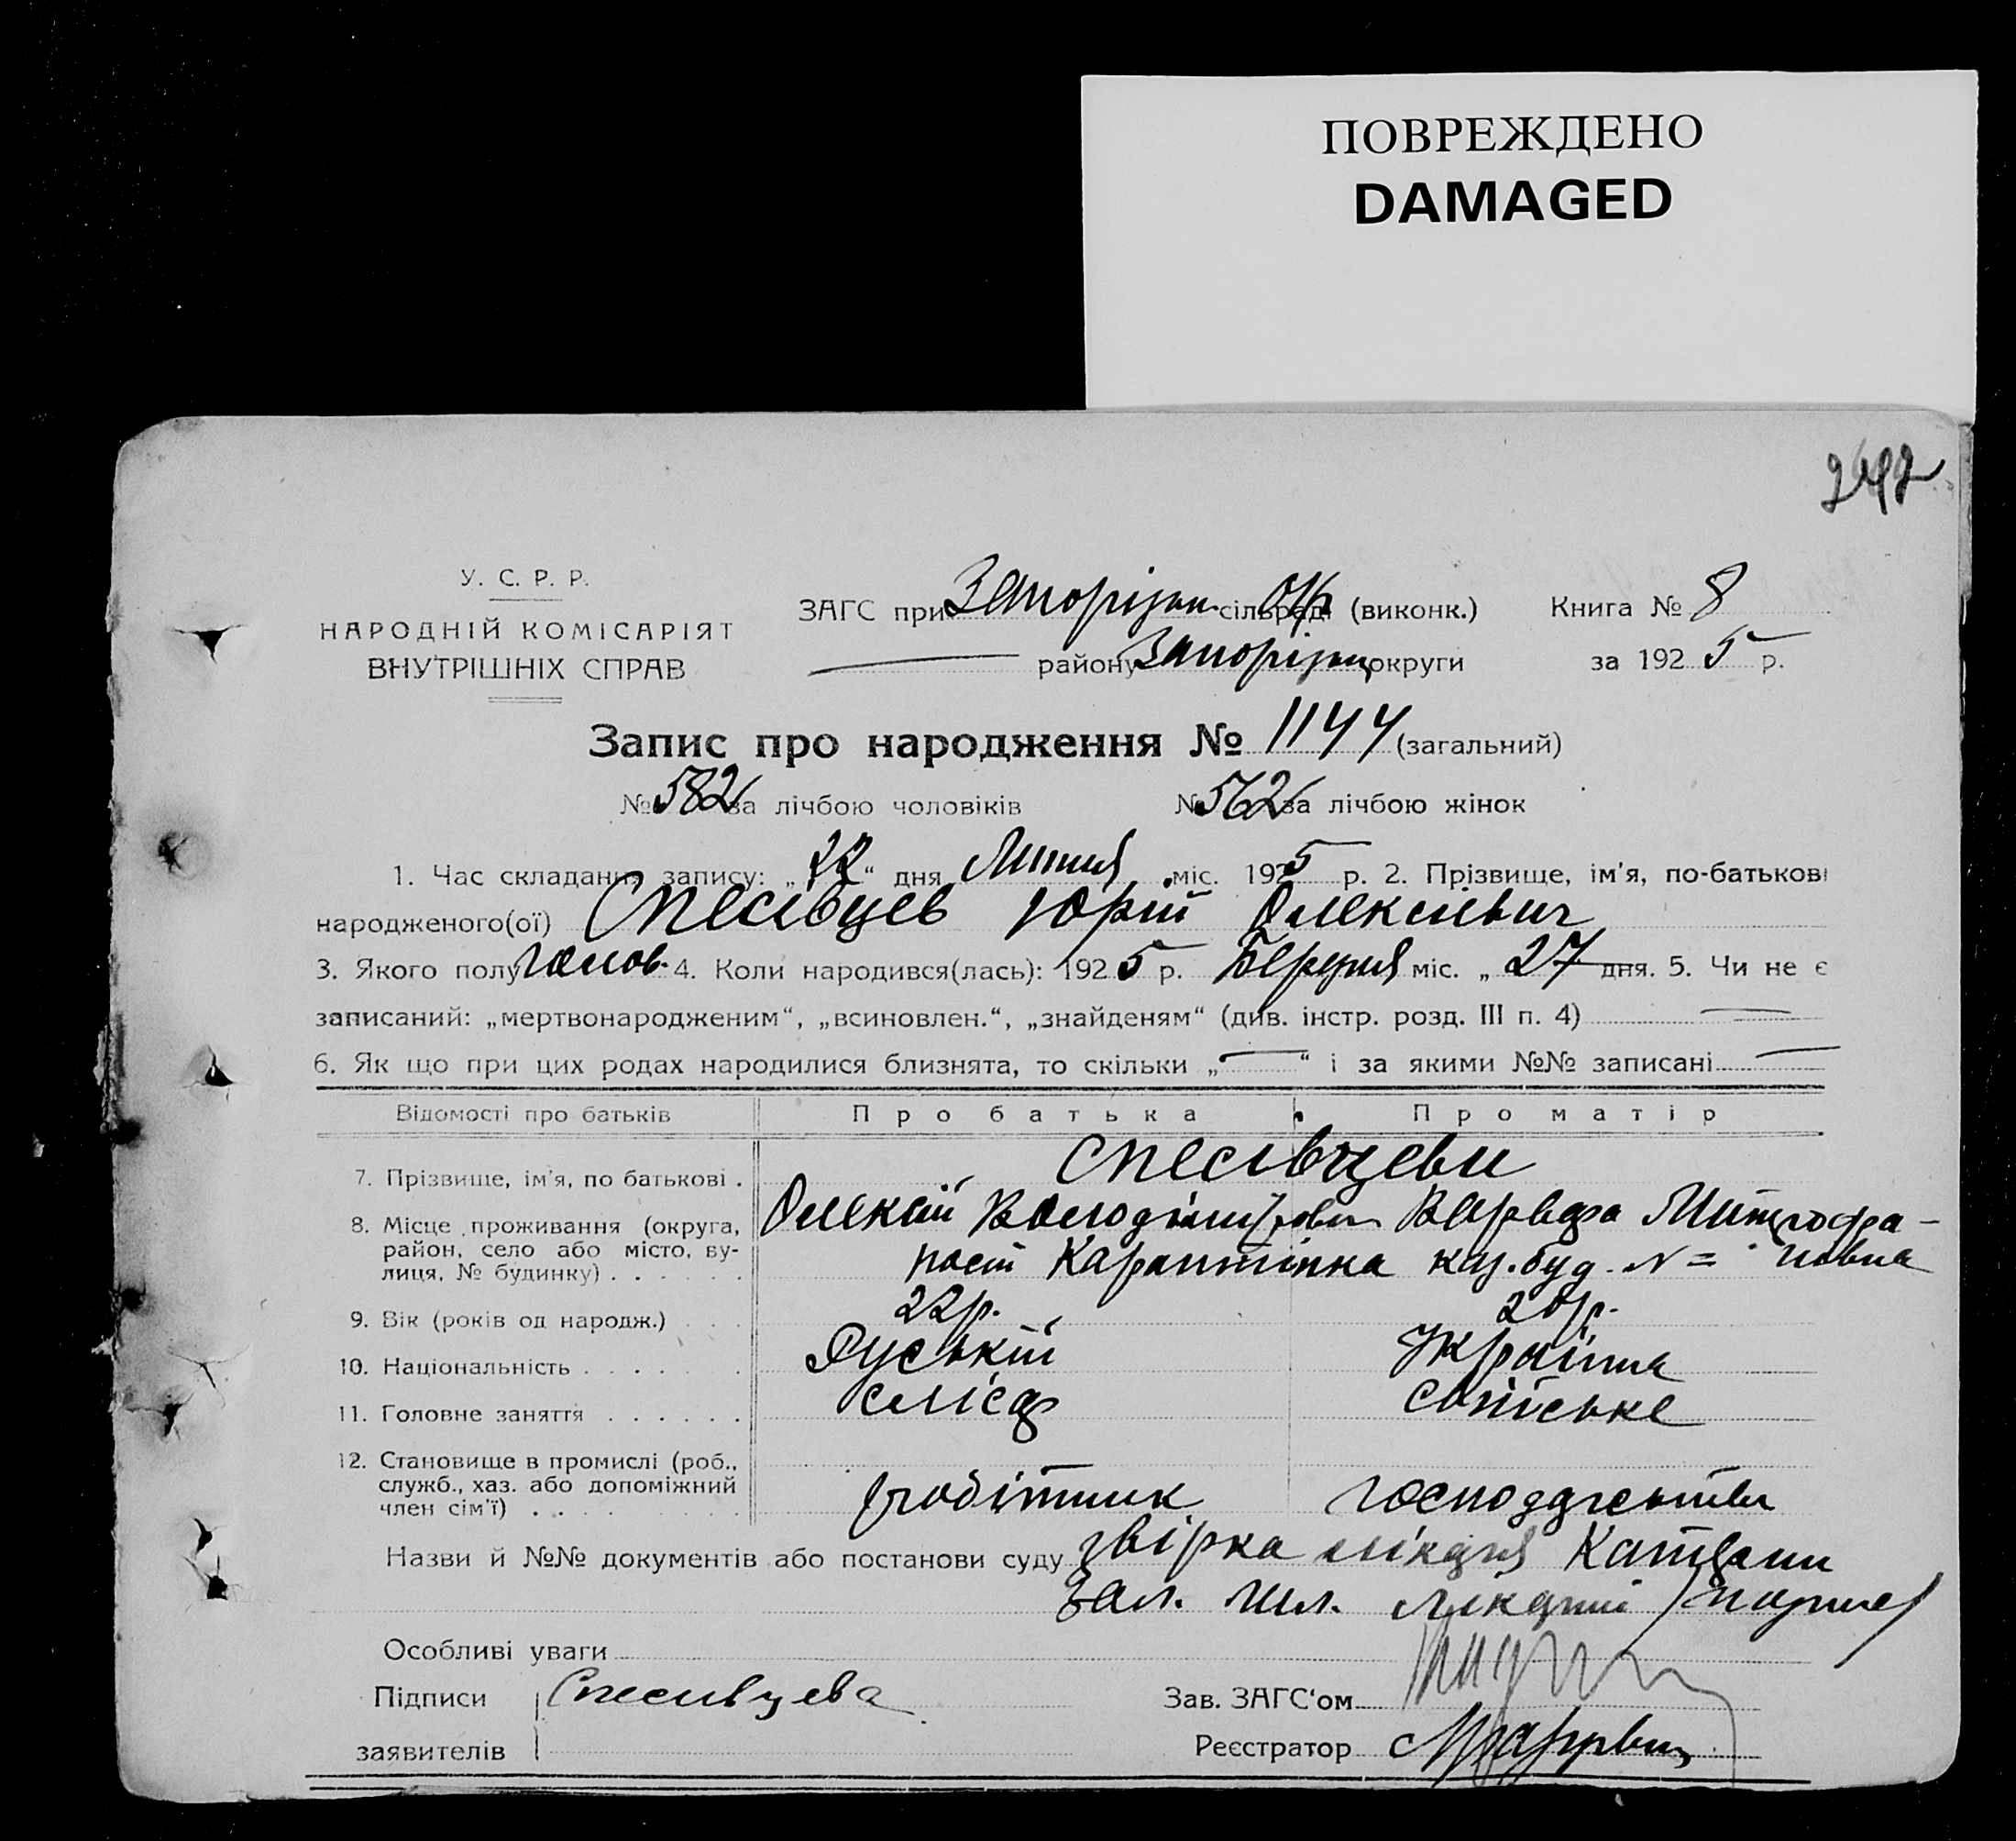 ПОВРЕЖДЕНО
DAMAGED
У. С. Р. Р.
НАРОДНІЙ КОМІСАРІЯТ
ВНУТРІШНІХ СПРАВ
ЗАГС при Запоріжн. сільраді (виконк.) Книга № 8
району Запоріжц округи за 1925 р.
Запис про народження № 1144 (загальний)
№ 582 за лічбою чоловіків № 562 за лічбою жінок
1. Час складання запису: „22“ дня Липня міс. 1925 р. 2. Прізвище, ім'я, по-батькові
народженого(ої) Спесівцев Юрій Олексієвич
3. Якого полу чолов. 4. Коли народився(лась): 1925 р. Березня міс. „27 дня. 5. Чи не є
записаний: „мертвонародженим“, „всиновлен.“, „знайденям“ (див. інстр. розд. III п. 4)
6. Як що при цих родах народилися близнята, то скільки „—“ і за якими №№ записані —
Відомості про батьків Про батька Про матір
7. Прізвище, ім'я, по батькові . Спесівцеви
Олексій Володімірович Варвара Митрофа-
8. Місце проживання (округа,
район, село або місто, ву-
лиця, № будинку) . . . . . . пост Карантінка каз. буд. N = новна
9. Вік (років од народж.) . . . 22р. 20р.
10. Національність . . . . . . Руській Україніка
11. Головне заняття . . . . . . слісар сільське
12. Становище в промислі (роб.,
служб., хаз. або допоміжний
член сім'ї) . . . . робітник господарство
Назви й №№ документів або постанови суду звірка лікаря
Зал.
Особливі уваги
Підписи Спесивцева Зав. ЗАГС'ом
заявителів Реєстратор